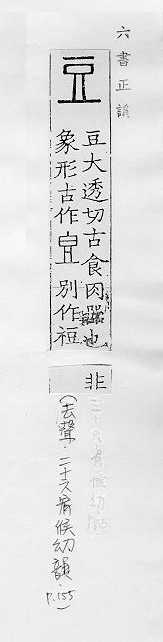 六書正譌
豆
豆大透切古食肉器也
象形古作𣅋別作梪
非
(去聲.二十六宥候幼韻.
P.155)